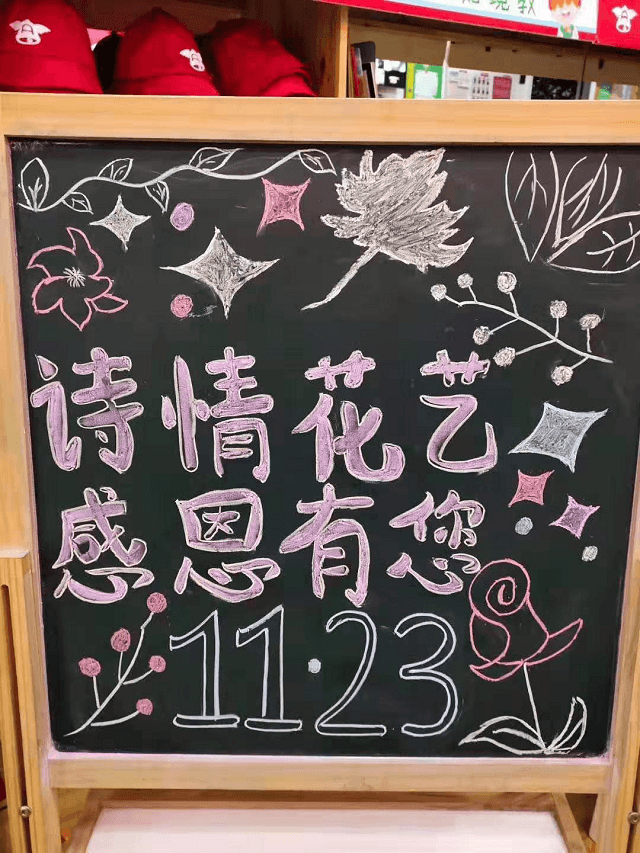 诗情花艺
感恩有您
11·23